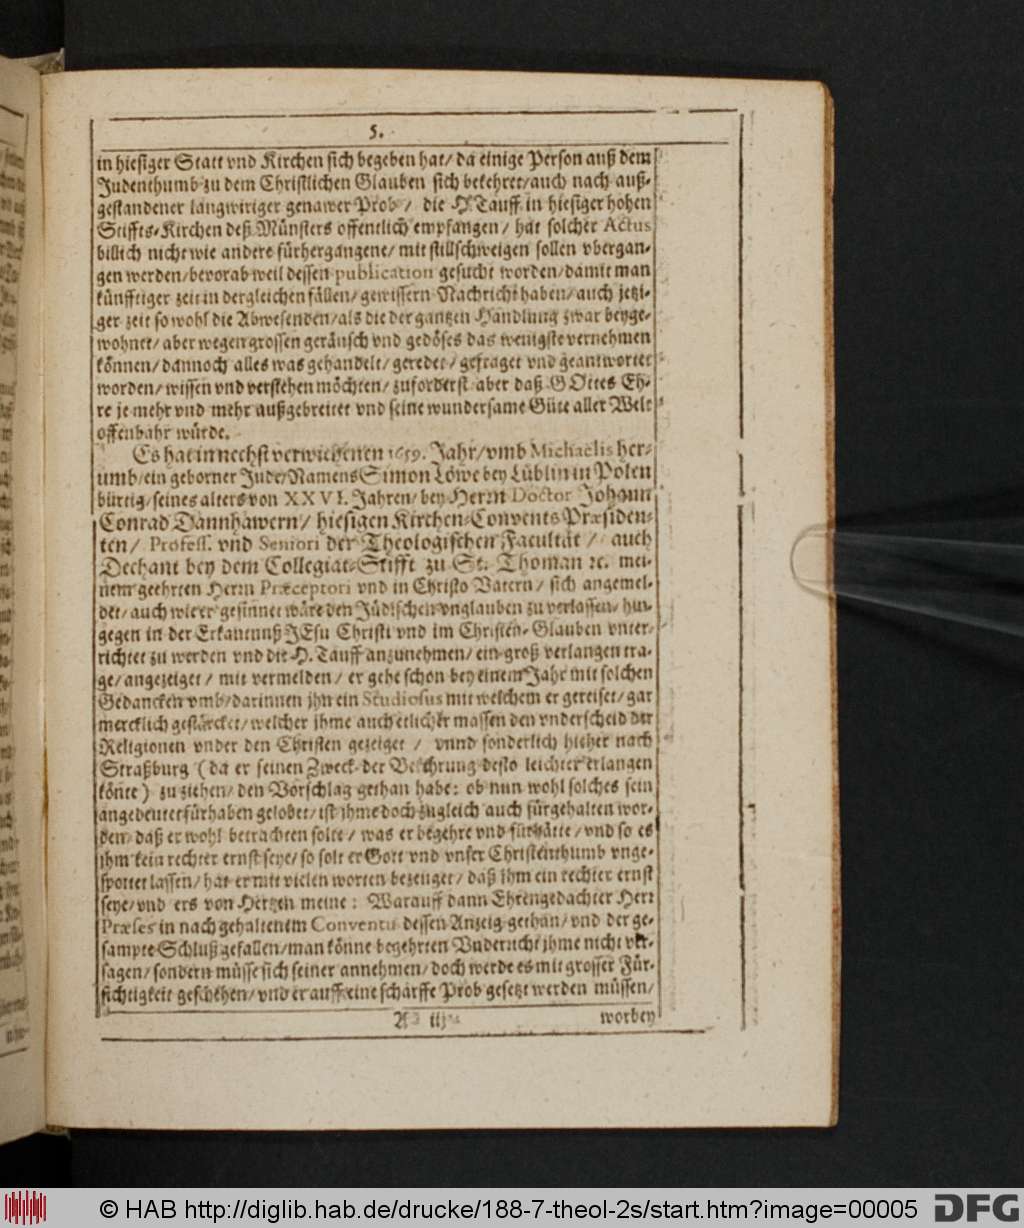 5.
in hiesiger Statt vnd Kirchen sich begeben hat/ da einige Person auß dem
Judenthumb zu dem Christlichen Glauben sich bekehret/ auch nach auß-
gestandener langwiriger genawer Prob/ die H. Tauff in hiesiger hohen
Stiffts-Kirchen deß Münsters offentlich empfangen/ hat solcher Actus
billich nicht wie andere fürhergangene/ mit stillschweigen sollen vbergan-
gen werden/ bevorab weil dessen publication gesucht worden/ damit man
künfftiger zeit in dergleichen fällen/ gewissern Nachricht haben/ auch jetzi-
ger zeit so wohl die Abwesenden/ als die der gantzen Handlung zwar beyge-
wohnet/ aber wegen grossen geräusch vnd gedöses das wenigste vernehmen
können/ dannoch alles was gehandelt/ geredet/ gefraget vnd geantwortet
worden/ wissen vnd verstehen möchten/ zuforderst aber daß GOttes Eh-
re je mehr vnd mehr außgebreitet vnd seine wundersame Güte aller Welt
offenbahr würde.
Es hat in nechst verwichenen 1659. Jahr/ vmb Michaelis her-
umb/ ein geborner Jude/ Namens Simon Löwe bey Lüblin in Polen
bürtig/ seines alters von XXVI. Jahren/ bey Herrn Doctor Johann
Conrad Dannhawern/ hiesigen Kirchen-Convents Præsiden-
ten/ Profess. vnd Seniori der Theologischen Facultät/ auch
Dechant bey dem Collegiat-Stifft zu St. Thoman ꝛc. mei-
nem geehrten Herrn Præceptori vnd in Christo Vatern/ sich angemel-
det/ auch wie er gesinnet wäre den Jüdischen vnglauben zu verlassen/ hin-
gegen in der Erkantnuß JEsu Christi vnd im Christen-Glauben vnter-
richtet zu werden vnd die H. Tauff anzunehmen/ ein groß verlangen tra-
ge/ angezeiget/ mit vermelden/ er gehe schon bey einem Jahr mit solchen
Gedancken vmb/ darinnen jhn ein Studiosus mit welchem er gereiset/ gar
mercklich gestärcket/ welcher ihme auch etlicher massen den vnderscheid der
Religionen vnder den Christen gezeiget/ vnnd sonderlich hieher nach
Straßburg (da er seinen Zweck der Bekehrung desto leichter erlangen
könte) zu ziehen/ den Vorschlag gethan habe: ob nun wohl solches sein
angedeutet fürhaben gelobet/ ist ihme doch zugleich auch fürgehalten wor-
den/ daß er wohl betrachten solte/ was er begehre vnd fürhätte/ vnd so es
jhm kein rechter ernst seye/ so solt er Gott vnd vnser Christenthumb vnge-
spottet lassen/ hat er mit vielen worten bezeuget/ daß jhm ein rechter ernst
seye/ vnd ers von Hertzen meine: Warauff dann Ehrengedachter Herr
Præses in nach gehaltenem Conventu dessen Anzeig gethan/ vnd der ge-
sampte Schluß gefallen/ man könne begehrten Vnderricht jhme nicht ver-
sagen/ sondern müsse sich seiner annehmen/ doch werde es mit grosser Für-
sichtigkeit geschehen/ vnd er auff eine scharffe Prob gesetzt werden müssen/
A iij
worbey
© HAB http://diglib.hab.de/drucke/188-7-theol-2s/start.htm?image=00005
DFG